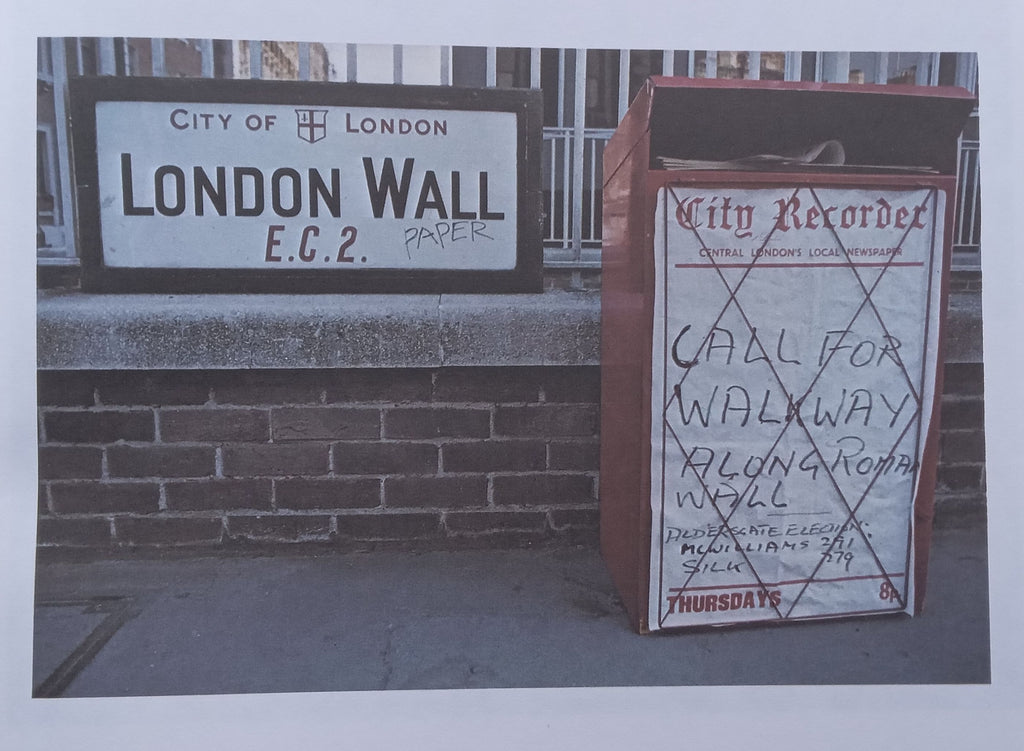 CITY OF LONDON
LONDON WALL
PAPER
E.C.2.
City Recorder
CENTRAL LONDON'S LOCAL NEWSPAPER
CALL FOR
WALKWAY
ALONG ROMAN
WALL
ALDERSGATE ELECTION:
MCWILLIAMS 291
SILK 279
THURSDAYS 8p